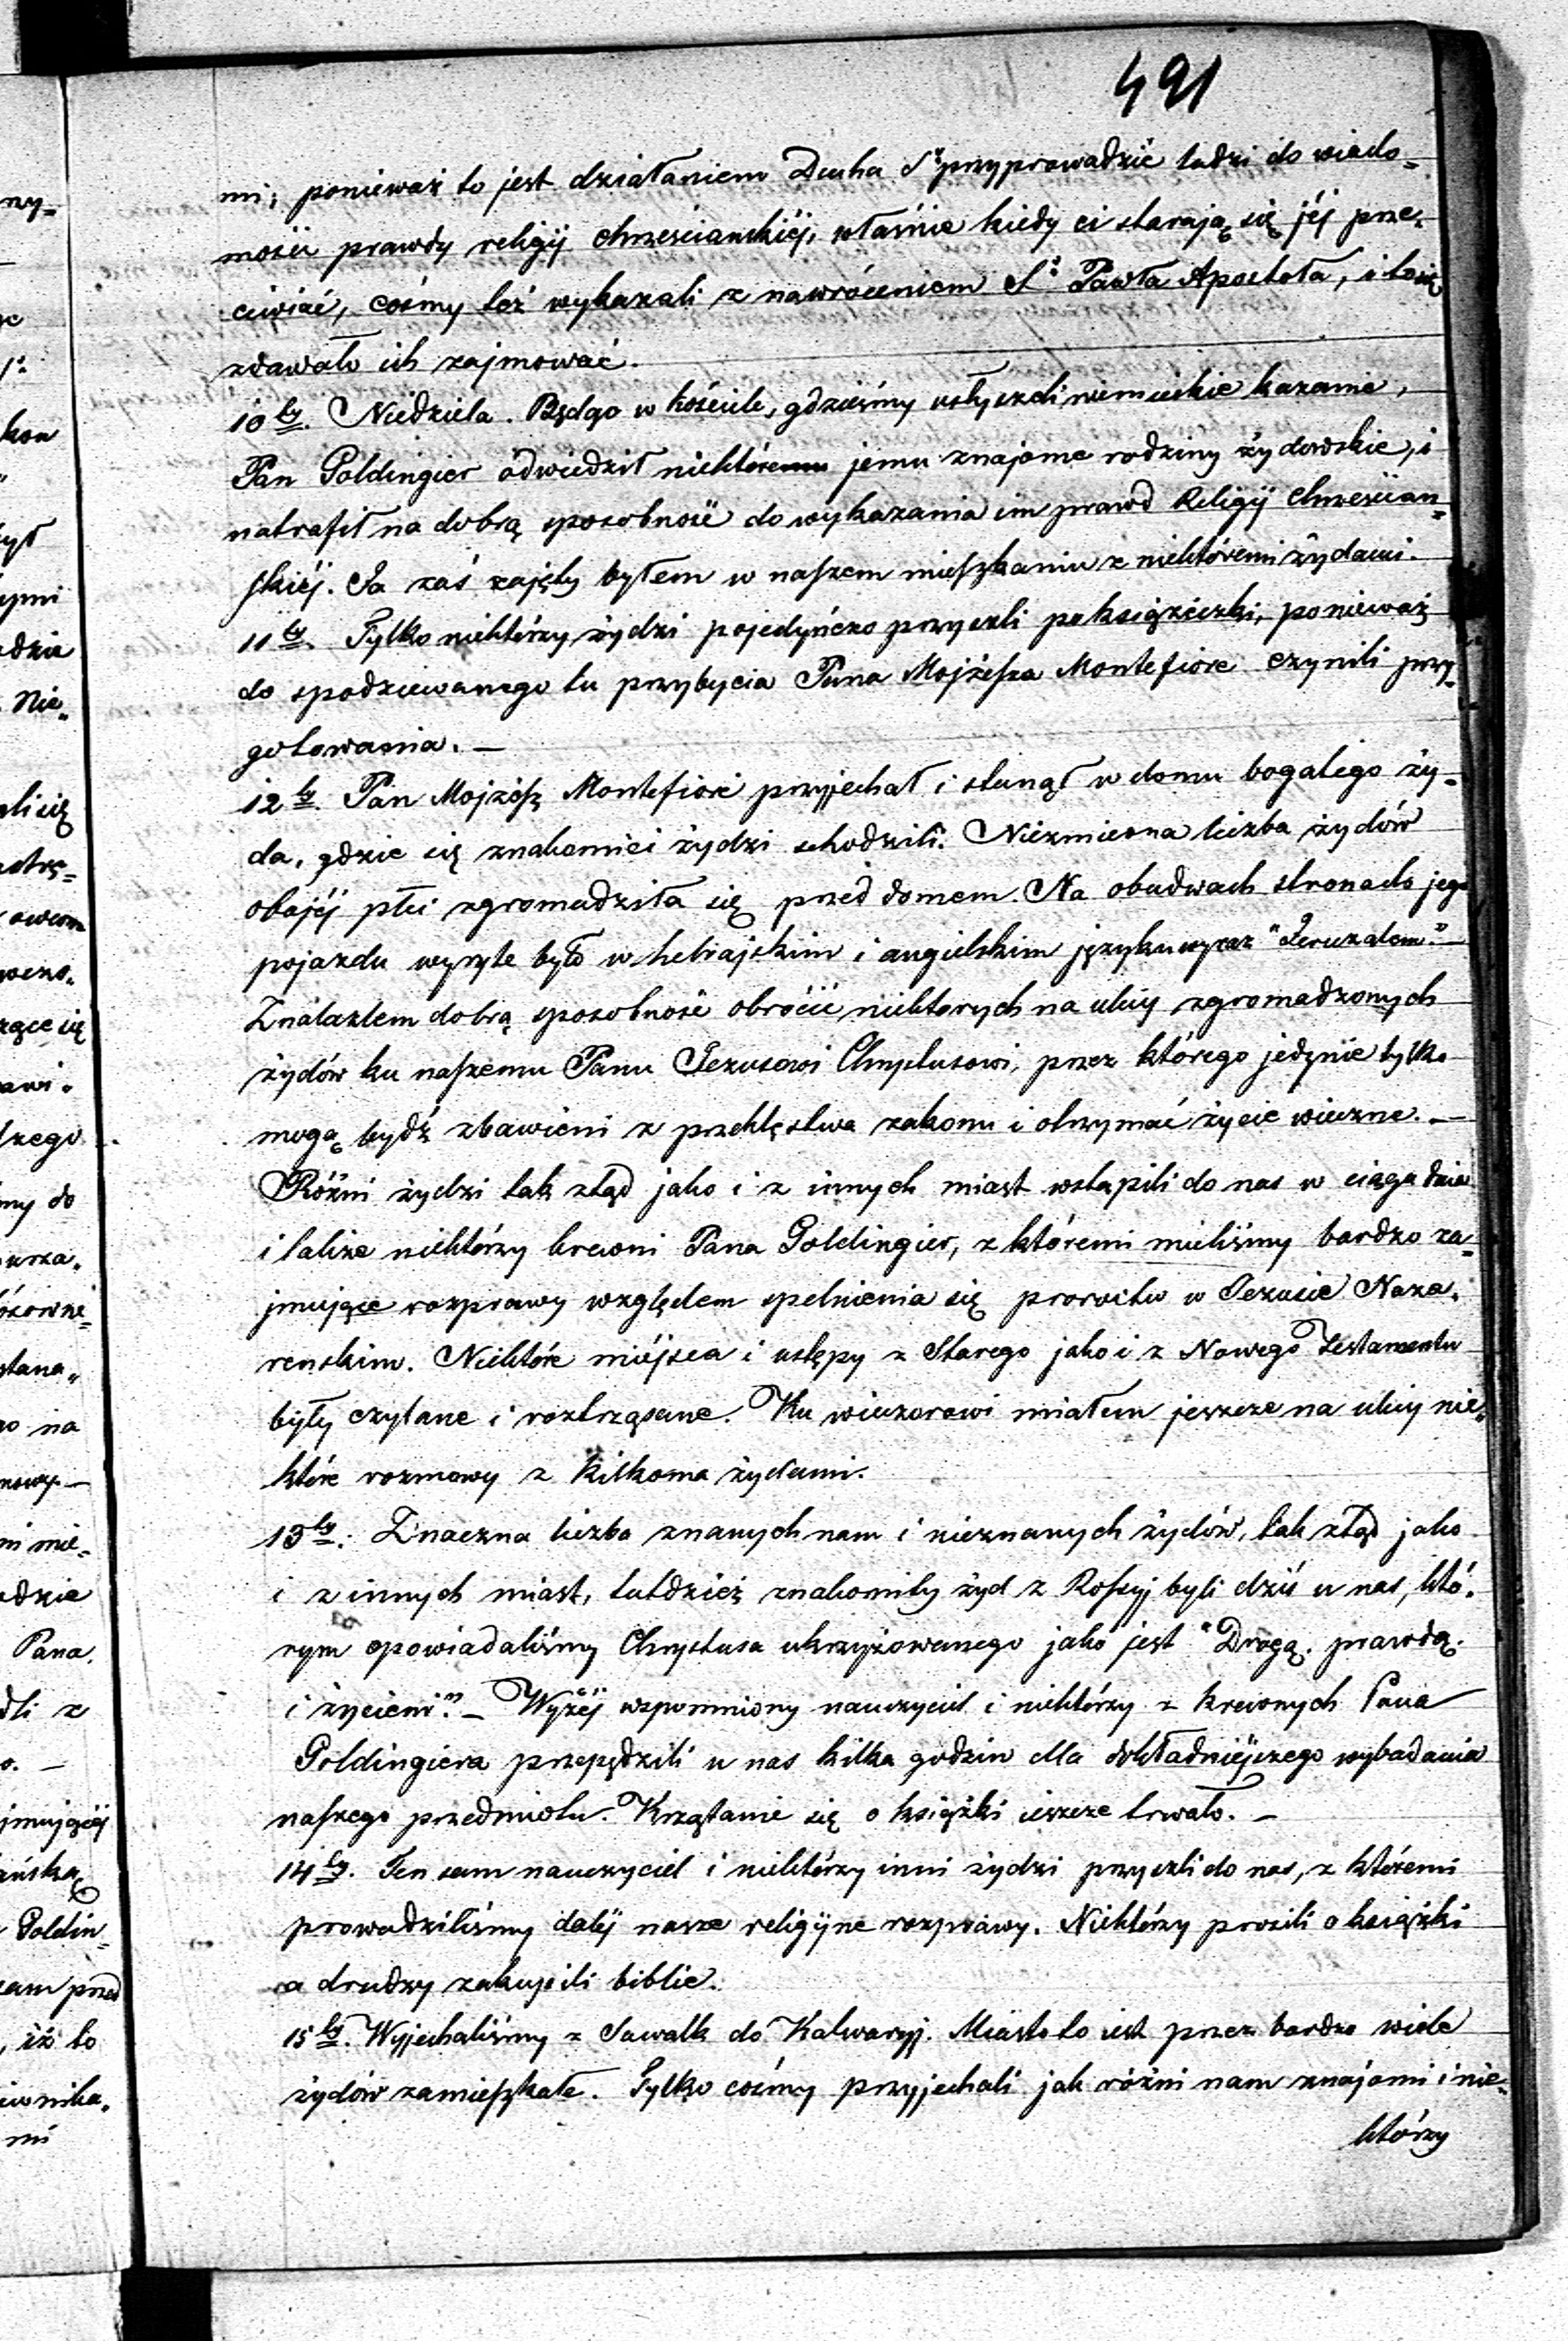 491
mi; ponieważ to jest działaniem Ducha Sº przyprowadzić ludzi do wiado„
mości prawdy religij chrześciańskiéj, właśnie kiedy ci starają się jéj prze„
ciwiać, cośmy też wykazali z nawróceniem Sº Pawła Apostoła, i to się
zdawało ich zajmować.
10ty. Niedziela. Będąc w kościele, gdzieśmy usłyszeli niemieckie kazanie,
Pan Goldingier odwiedził niektóre jemu znajome rodziny żydowskie, i
natrafił na dobrą sposobność do wykazania im prawd Religij Chrześcian„
skiéj. Ja zaś zajęty byłem w naszem mieszkaniu z niektóremi żydami.
11ty. Tylko niektórzy żydzi pojedyńczo przyszli po książeczki, ponieważ
do spodziewanego tu przybycia Pana Mojżesza Montefiore czynili przy„
gotowania. —
12ty. Pan Mojżész Montefiore przyjechał i stanął w domu bogatego ży„
da, gdzie się znakomici żydzi schodzili. Niezmierna liczba żydów
obojéj płci zgromadziła się przed domem. Na obudwach stronach jego
pojazdu wyryte było w hebrajskim i angielskim języku wyraz "Jeruzalem". —
Znalazłem dobrą sposobność obrócić niektorych na ulicy zgromadzonych
żydów ku naszemu Panu Jezusowi Chrystusowi, przez którego jedynie tylko
mogą bydź zbawieni z przeklęstwa zakonu i otrzymać życie wieczne. —
Różni żydzi tak ztąd jako i z innych miast wstąpili do nas w ciągu dnia
i także niektórzy krewni Pana Goldingier, z któremi mieliśmy bardzo za„
jmujące rozprawy względem spełnienia się proroctw w Jezusie Naza„
renskim. Niektóre miéjsca i ustępy z Starego jako i z Nowego Testamentu
były czytane i roztrząsane. Ku wieczorowi miałem jeszcze na ulicy nie„
które rozmowy z kilkoma żydami.
13ty. Znaczna liczba znanych nam i nieznanych żydów, tak ztąd jako
i z innych miast, tutdzież znakomity żyd z Rossyj byli dziś u nas, któ„
rym opowiadaliśmy Chrystusa ukrzyżowanego jako jest "Drogą, prawdą
i życiem". — Wyżéj wspomniony nauczyciel i niektórzy z krewnych Pana
Goldingiera przepędzili u nas kilka godzin dla dokładniéjszego wybadania
naszego przedmiotu. Krzątanie się o książki ieszcze trwało. —
14ty. Ten sam nauczyciel i niektórzy inni żydzi przyszli do nas, z któremi
prowadziliśmy daléj nasze religijne rozprawy. Niektórzy prosili o książki
a drudzy zakupili biblie.
15ty. Wyjechaliśmy z Suwałk do Kalwaryj. Miasto to iest przez bardzo wiele
żydów zamieszkałe. Tylko cośmy przyjechali jak różni nam znajomi i nie„
którzy